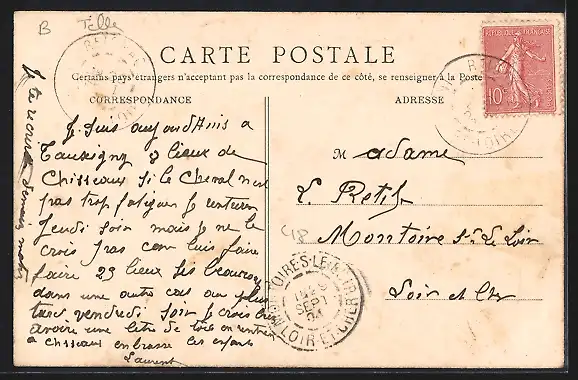 B
Telle
CARTE POSTALE
Certains pays étrangers n'acceptent pas la correspondance de ce côté, se renseigner à la Poste
CORRESPONDANCE
ADRESSE
REPUBLIQUE FRANÇAISE
10
Je suis aujourd'huis a
3 lieux de
Chisseaux Si le Cheval n'est
pas trop fatiguer je renterer
Jeudi soir mais je ne le
crois pas car luis faire
faire 23 lieux ses beaucoup
dans une autre cas au plus
tard vendredi soir je crois bien
avoire une letre de toie en rentren
a Chisseaux embrasse les enfants
Laurent
Madame
L. Retif
Montoire s. Le Loir
Loir et Cher
MONTOIRE-S-LE-LOIR
SEPT
04
LOIR-ET-CHER